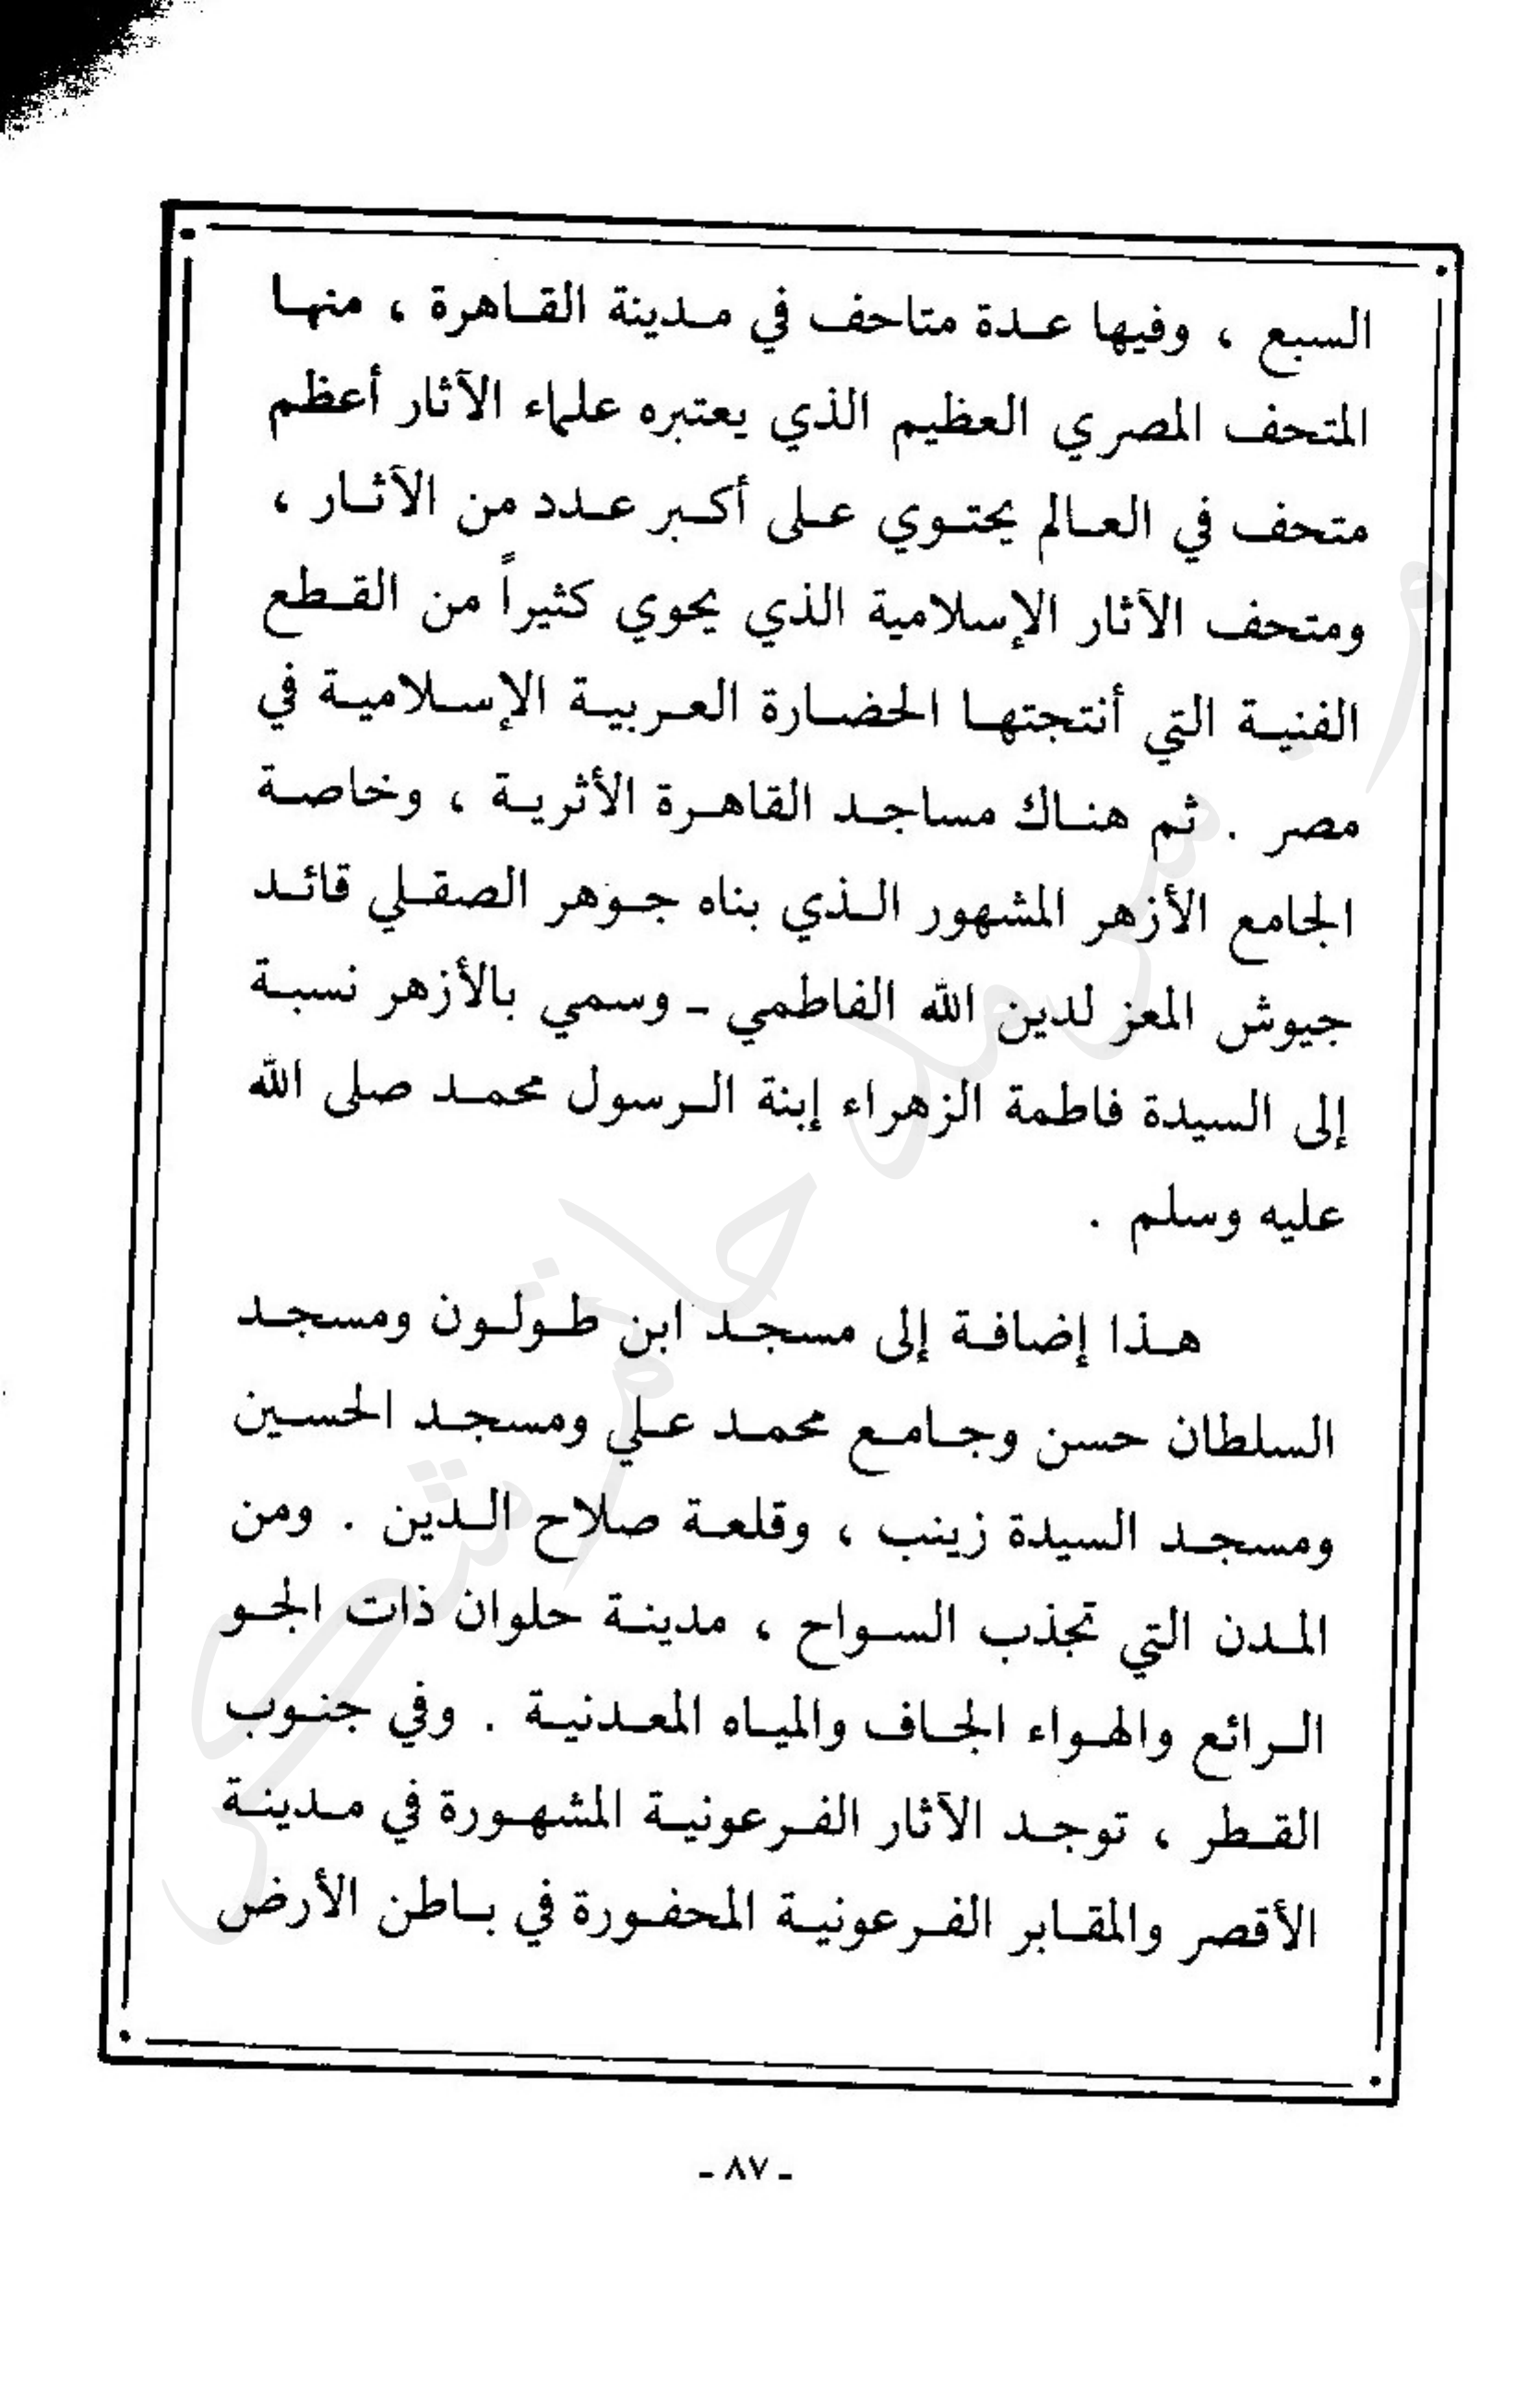 السبع ، وفيها عدة متاحف في مدينة القاهرة ، منها
المتحف المصري العظيم الذي يعتبره علماء الآثار أعظم
متحف في العالم يحتوي على أكبر عدد من الآثار ،
ومتحف الآثار الإسلامية الذي يحوي كثيراً من القطع
الفنية التي أنتجتها الحضارة العربية الإسلامية في
مصر . ثم هناك مساجد القاهرة الأثرية ، وخاصة
الجامع الأزهر المشهور الذي بناه جوهر الصقلي قائد
جيوش المعز لدين الله الفاطمي - وسمي بالأزهر نسبة
إلى السيدة فاطمة الزهراء إبنة الرسول محمد صلى الله
عليه وسلم .
هذا إضافة إلى مسجد ابن طولون ومسجد
السلطان حسن وجامع محمد علي ومسجد الحسين
ومسجد السيدة زينب ، وقلعة صلاح الدين . ومن
المدن التي تجذب السواح ، مدينة حلوان ذات الجو
الرائع والهواء الجاف والمياه المعدنية . وفي جنوب
القطر ، توجد الآثار الفرعونية المشهورة في مدينة
الأقصر والمقابر الفرعونية المحفورة في باطن الأرض
- ٨٧ -